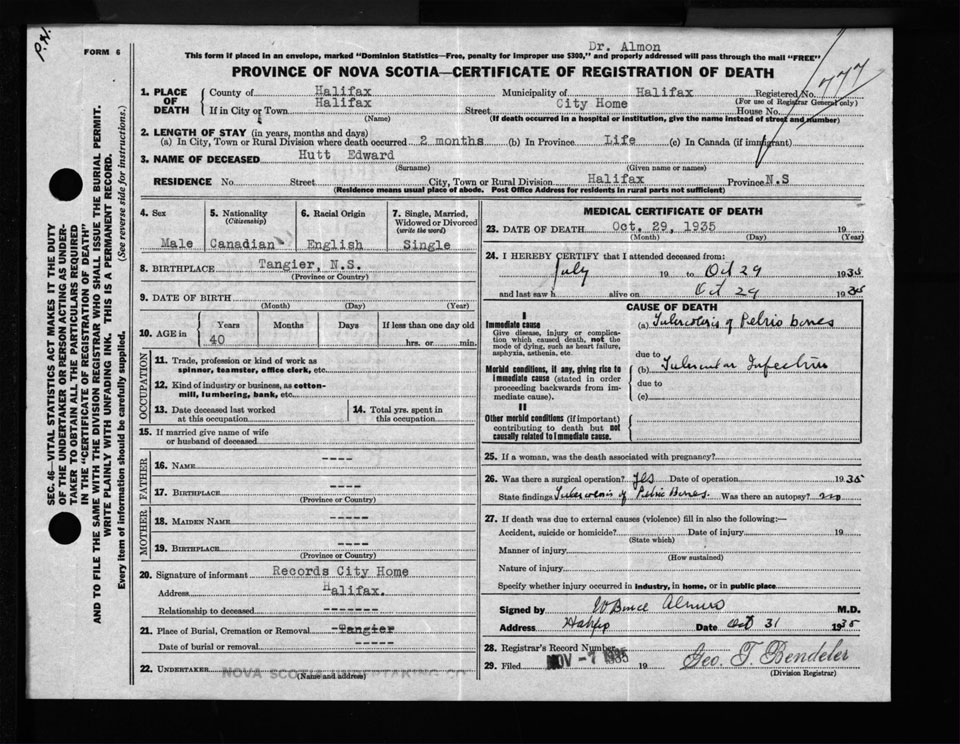 P.N.
FORM 6
Dr. Almon
This form if placed in an envelope, marked "Dominion Statistics—Free, penalty for improper use $300," and properly addressed will pass through the mail "FREE"
PROVINCE OF NOVA SCOTIA—CERTIFICATE OF REGISTRATION OF DEATH
777
1. PLACE OF DEATH
County of Halifax Municipality of Halifax Registered No.
(For use of Registrar General only)
If in City or Town Halifax Street City Home House No.
(Name) (If death occurred in a hospital or institution, give the name instead of street and number)
2. LENGTH OF STAY (in years, months and days)
(a) In City, Town or Rural Division where death occurred 2 months (b) In Province Life (c) In Canada (if immigrant)
3. NAME OF DECEASED Hutt Edward
(Surname) (Given name or names)
RESIDENCE No. Street City, Town or Rural Division Halifax Province N.S
(Residence means usual place of abode. Post Office Address for residents in rural parts not sufficient)
4. Sex
Male
5. Nationality
(Citizenship)
Canadian
6. Racial Origin
English
7. Single, Married, Widowed or Divorced
(write the word)
Single
8. BIRTHPLACE Tangier, N.S.
(Province or Country)
9. DATE OF BIRTH
(Month) (Day) (Year)
10. AGE in
Years Months Days If less than one day old
40 hrs. or min.
OCCUPATION
11. Trade, profession or kind of work as
spinner, teamster, office clerk, etc.
12. Kind of industry or business, as cotton-
mill, lumbering, bank, etc.
13. Date deceased last worked
at this occupation
14. Total yrs. spent in
this occupation
15. If married give name of wife
or husband of deceased
FATHER
16. NAME ----
17. BIRTHPLACE ----
(Province or Country)
MOTHER
18. MAIDEN NAME -----
19. BIRTHPLACE -----
(Province or Country)
20. Signature of informant Records City Home
Address Halifax.
Relationship to deceased --------
21. Place of Burial, Cremation or Removal -Tangier
Date of burial or removal -----
22. UNDERTAKER NOVA SCOTIA UNDERTAKING CO
(Name and address)
MEDICAL CERTIFICATE OF DEATH
23. DATE OF DEATH Oct. 29, 1935 19
(Month) (Day) (Year)
24. I HEREBY CERTIFY that I attended deceased from:
July 19 to Oct 29 1935
and last saw h alive on Oct 29 1935
CAUSE OF DEATH
I
Immediate cause
Give disease, injury or complica-
tion which caused death, not the
mode of dying, such as heart failure,
asphyxia, asthenia, etc.
(a) Tuberculosis of Pelvic bones
due to
Morbid conditions, if any, giving rise to
immediate cause (stated in order
proceeding backwards from im-
mediate cause).
(b) Tubercular Infection
due to
(c)
II
Other morbid conditions (if important)
contributing to death but not
causally related to immediate cause.
25. If a woman, was the death associated with pregnancy?
26. Was there a surgical operation? yes Date of operation 1935
State findings Tuberculosis of Pelvic Bones. Was there an autopsy? no
27. If death was due to external causes (violence) fill in also the following:—
Accident, suicide or homicide? Date of injury 19
(State which)
Manner of injury
(How sustained)
Nature of injury
Specify whether injury occurred in industry, in home, or in public place
Signed by W Bruce Almon M.D.
Address Halifax Date Oct 31 1935
28. Registrar's Record Number
29. Filed NOV -7 1935 19 Geo. T. Bendeler
(Division Registrar)
SEC. 46—VITAL STATISTICS ACT MAKES IT THE DUTY
OF THE UNDERTAKER OR PERSON ACTING AS UNDER-
TAKER TO OBTAIN ALL THE PARTICULARS REQUIRED
IN THE "CERTIFICATE OF REGISTRATION OF DEATH"
AND TO FILE THE SAME WITH THE DIVISION REGISTRAR WHO SHALL ISSUE THE BURIAL PERMIT.
WRITE PLAINLY WITH UNFADING INK. THIS IS A PERMANENT RECORD.
Every item of information should be carefully supplied. (See reverse side for instructions.)